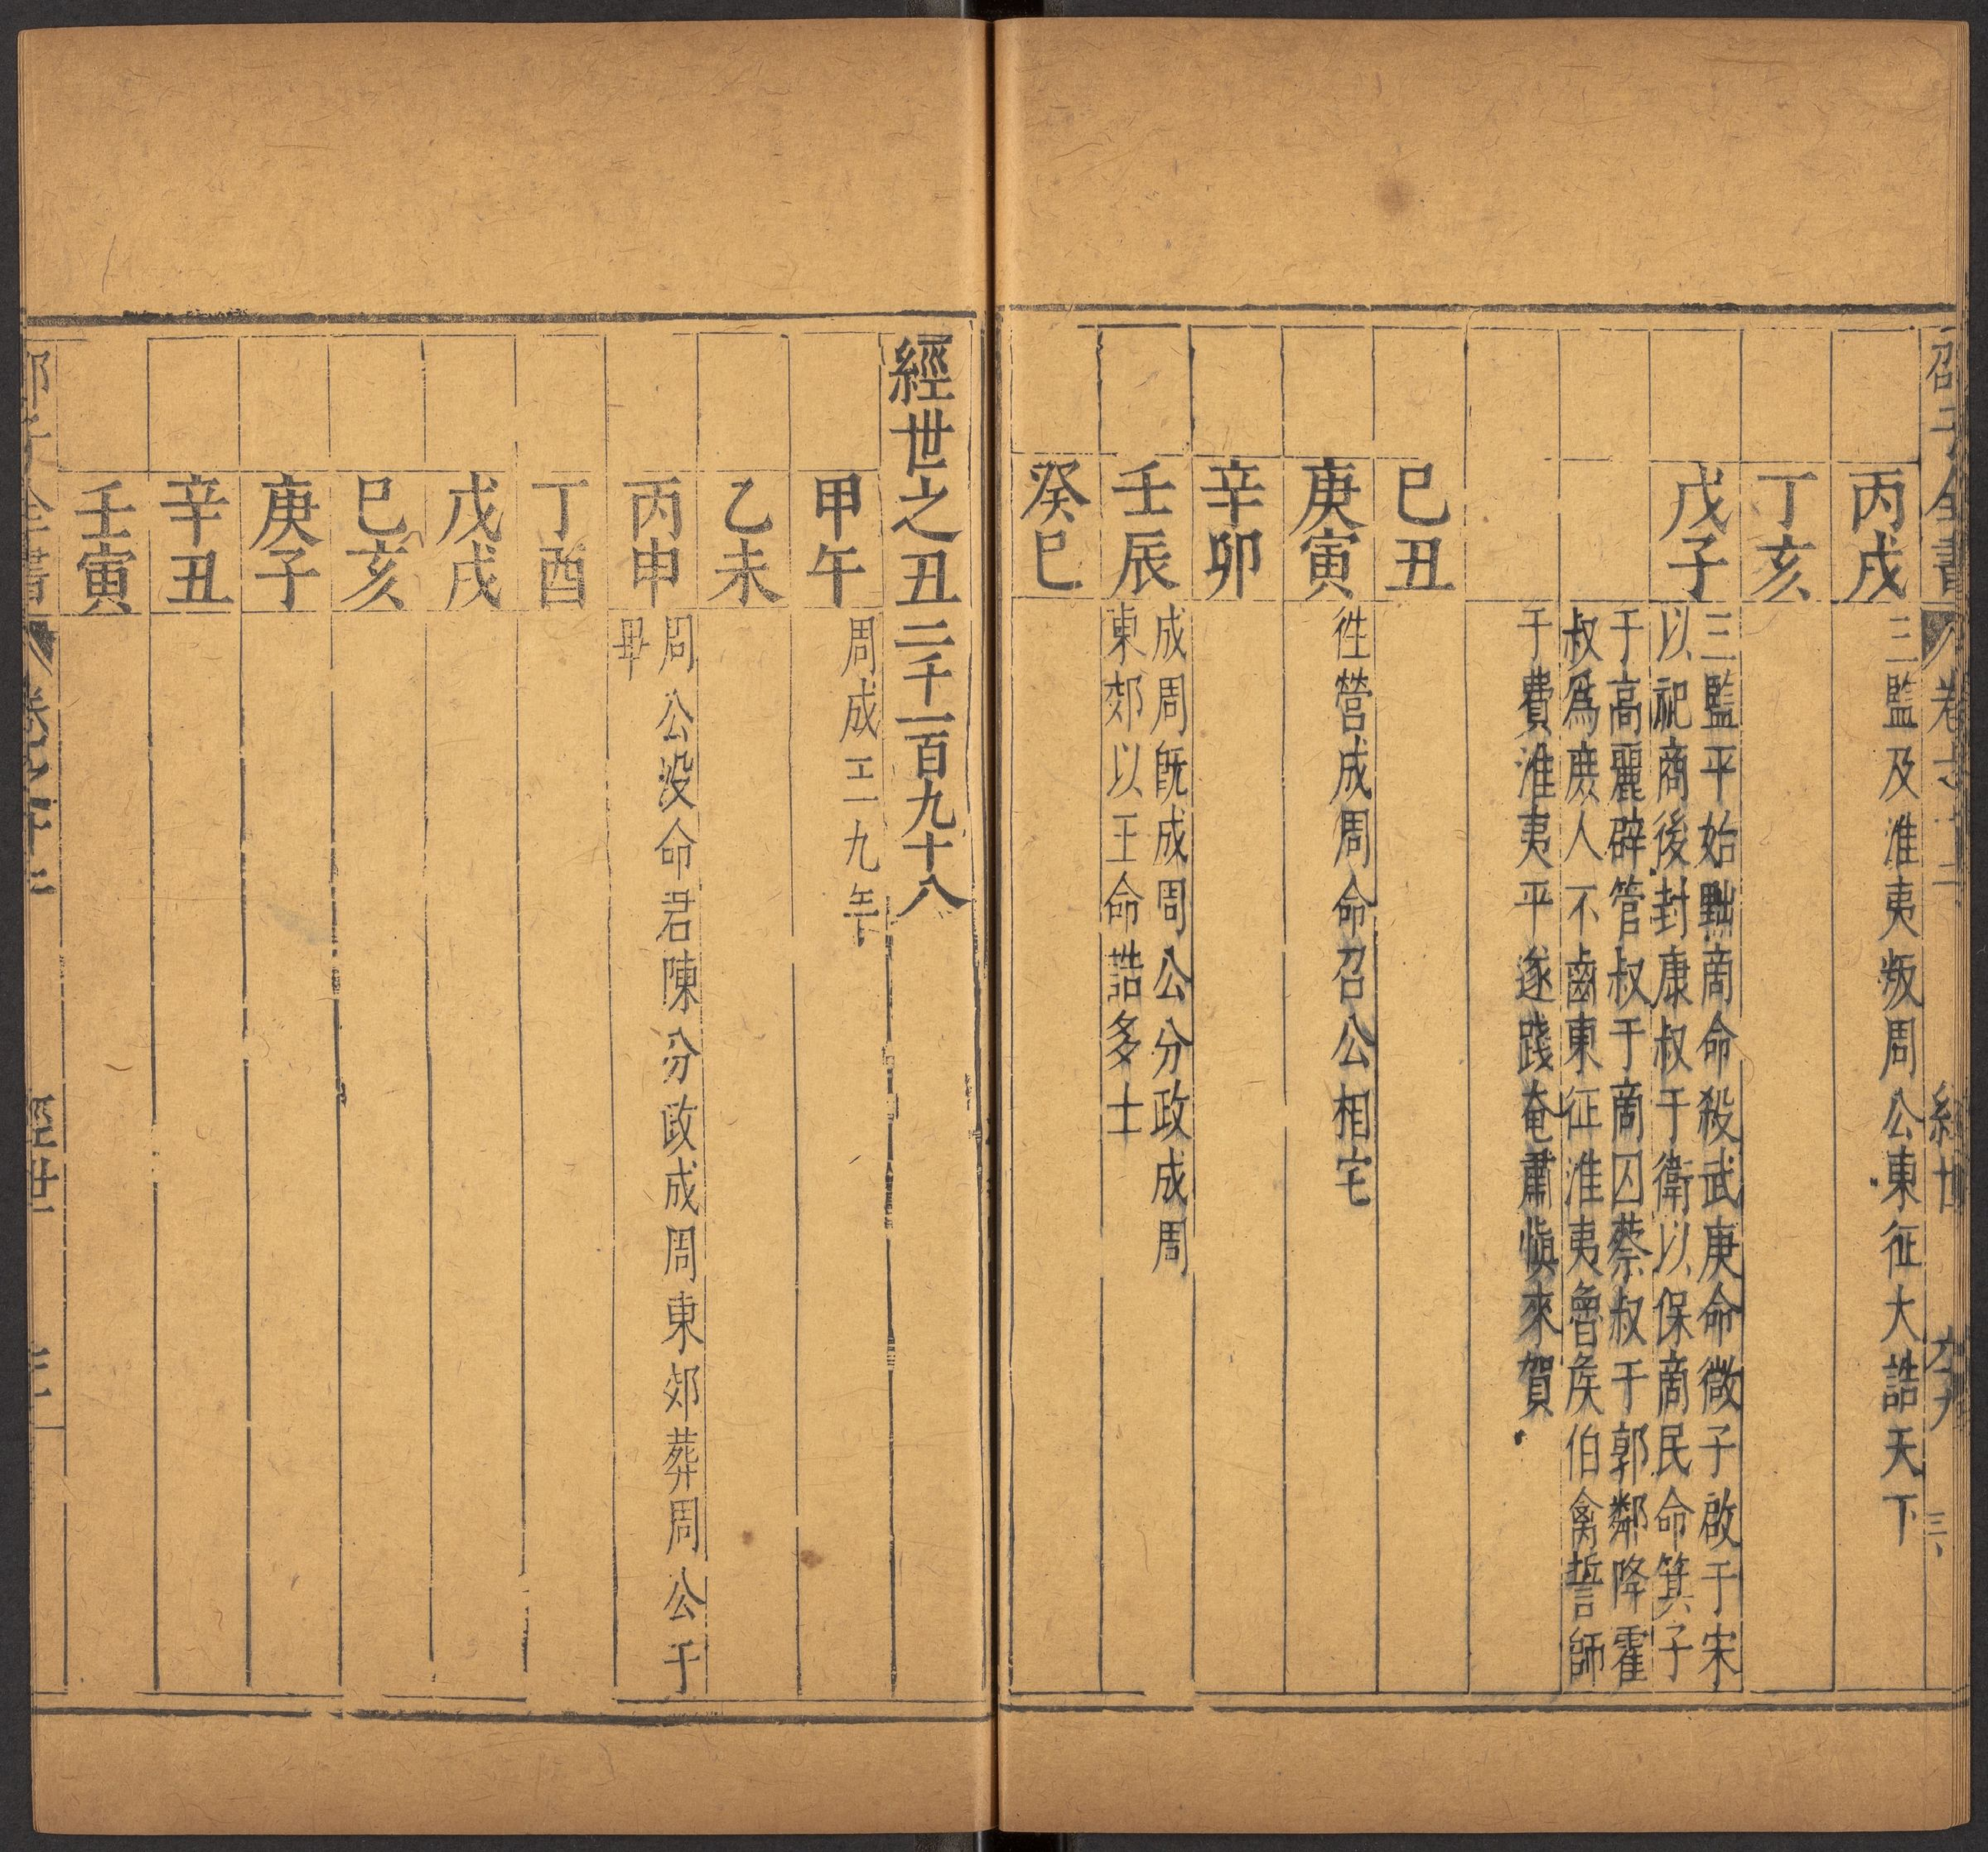 丙戌
三監及淮夷叛周公東征大誥天下
丁亥
戊子
三監平始黜商命殺武庚命微子啟于宋
以祀商後封康叔于衛以保商民命箕子
于高麗辟管叔于商囚蔡叔于郭鄰降霍
叔爲庶人不齒東征淮夷魯矦伯禽誓師
于費淮夷平遂踐奄肅愼來賀
巳丑
庚寅
徃營成周命召公相宅
辛卯
壬辰
成周旣成周公分政成周
東郊以王命誥多士
癸巳
經世之丑二千一百九十八
甲午
周成王一九年
乙未
丙申
周公没命君陳分政成周東郊葬周公于
畢
丁酉
戊戌
巳亥
庚子
辛丑
壬寅
經世